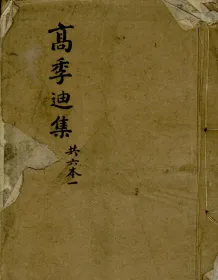 高季迪集
共六本一